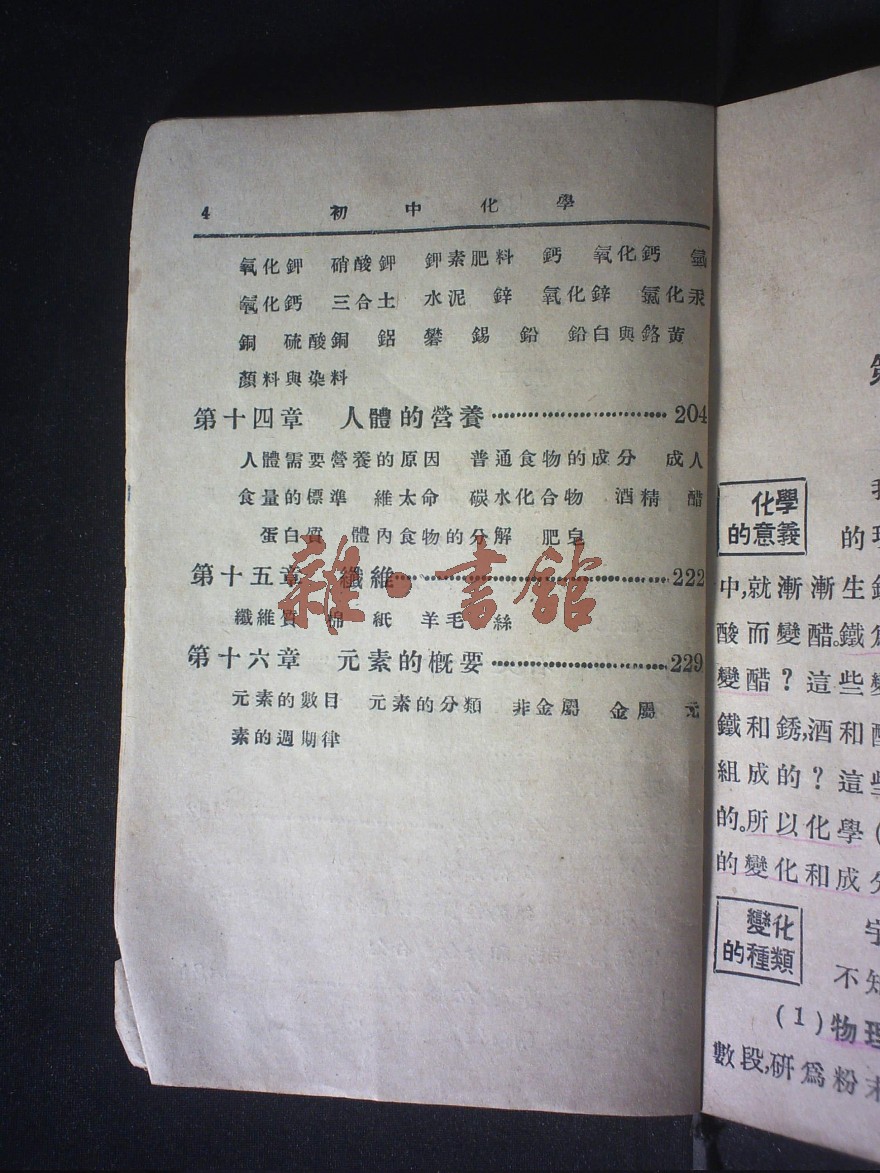 4 初中化學
氧化鉀 硝酸鉀 鉀素肥料 鈣 氧化鈣
氧化鈣 三合土 水泥 鋅 氧化鋅 氯化汞
銅 硫酸銅 鋁 礬 錫 鉛 鉛白與鉻黃
顏料與染料
第十四章 人體的營養 204
人體需要營養的原因 普通食物的成分 成人
食量的標準 維太命 碳水化合物 酒精 醋
蛋白質 體內食物的分解 肥皂
第十五章 纖維 222
纖維質 棉 紙 羊毛 絲
第十六章 元素的概要 229
元素的數目 元素的分類 非金屬 金屬 元
素的週期律
雜·書館
化學
的意義
的
中,就漸漸生
酸而變醋。鐵
變醋?這些
鐵和銹,酒和
組成的?這
的。所以化學(
的變化和成
變化
的種類
不知
(1)物理
數段,研爲粉末